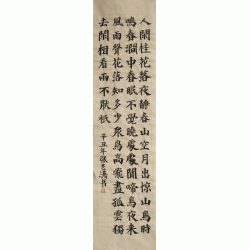 人閒桂花落夜静春山空月出惊山鳥時
鳴春澗中春眠不覺曉處處聞啼鳥夜来
風雨聲花落知多少衆鳥高飛盡孤雲獨
去閒相看两不厭祇
辛丑年張書